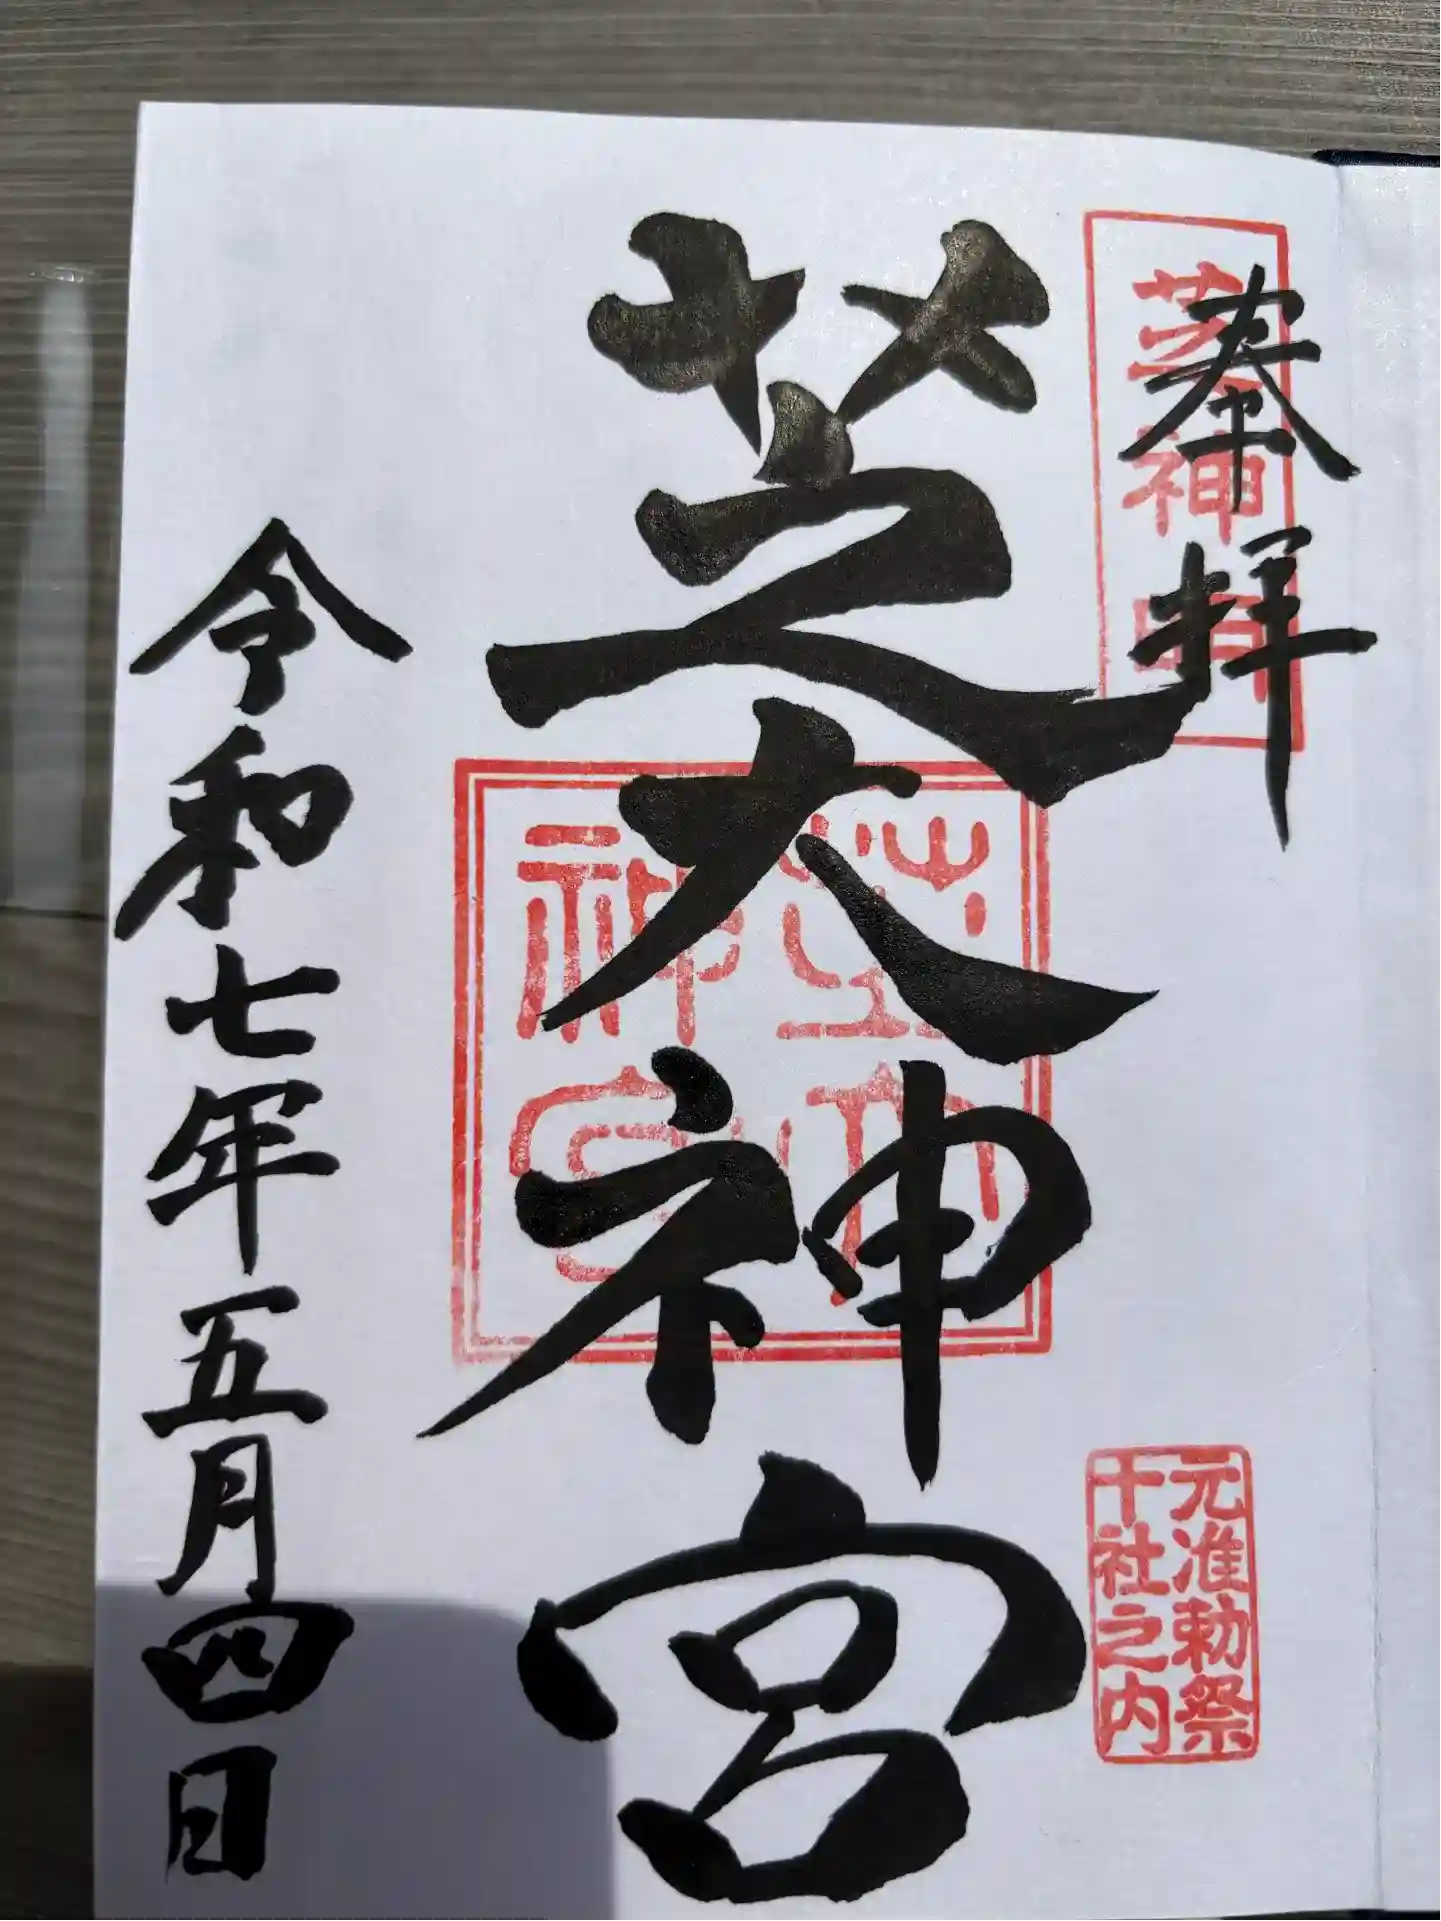 奉拝
芝神明
芝大神宮
芝大神宮
元准勅祭
十社之内
令和七年五月四日